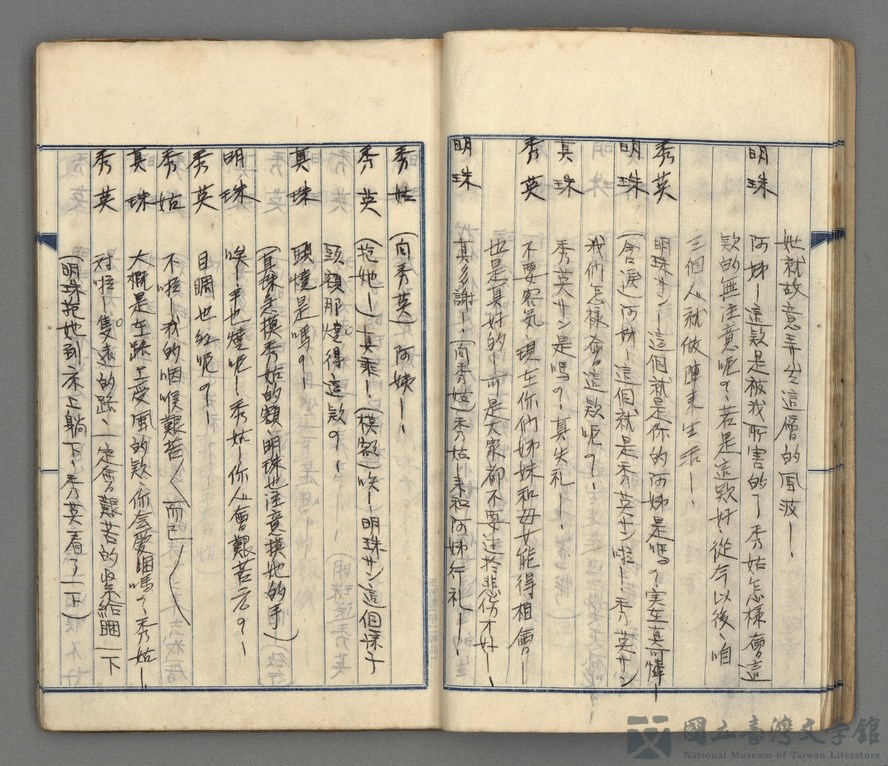 她就故意弄出這層的風波──
明珠 阿姊─這款是被我所害的了秀姑怎樣會這
款的無注意呢?若是這款好、從今以後、咱
三個人就做陣來生活──
秀英 明珠サン─這個就是你的阿姊是嗎?实在真可憐─
明珠 (含淚)阿姊─這個就是秀英サン啦─秀英サン
我們怎樣會這款呢?─
真珠 秀英サン是嗎?真失礼─
秀英 不要客气、現在你們姊妹和母女能得相會─
也是真好的─而是大家都不要迷於悲伤才好──
明珠 真多謝─(向秀姑)秀姑─來和阿姊行礼──
秀姑 (向秀英)阿姨──
秀英 (抱她─)真乖─(摸額)唉─明珠サン這個樣子
頭額那燒得這款?─
真珠 頭燒是嗎?─
(真珠急摸秀姑的額、明珠也注意摸她的手)
明珠 唉─手也燒呢─秀姑─你人會艱苦否?─
秀英 目睭也紅呢?─
秀姑 不啦─我的咽喉艱苦 而已
真珠 大概是在路上受風的款、你會愛睏嗎?秀姑─
秀英 対啦─隻遠的路、一定會艱苦的 緊給睏一下
(明珠抱她到床上躺下、秀英看了一下)
國立臺灣文學館
National Museum of Taiwan Literature